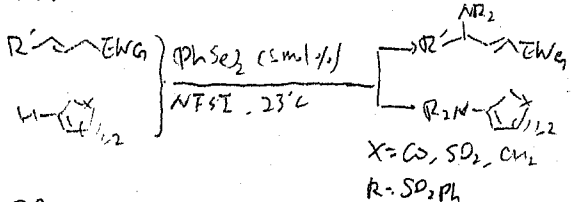 R' EWG
(PhSe)2 (5mol%)
NFSI, 23°C
NR2
R' EWG
H X 1,2
R2N X 1,2
X= CO, SO2, CH2
R= SO2Ph